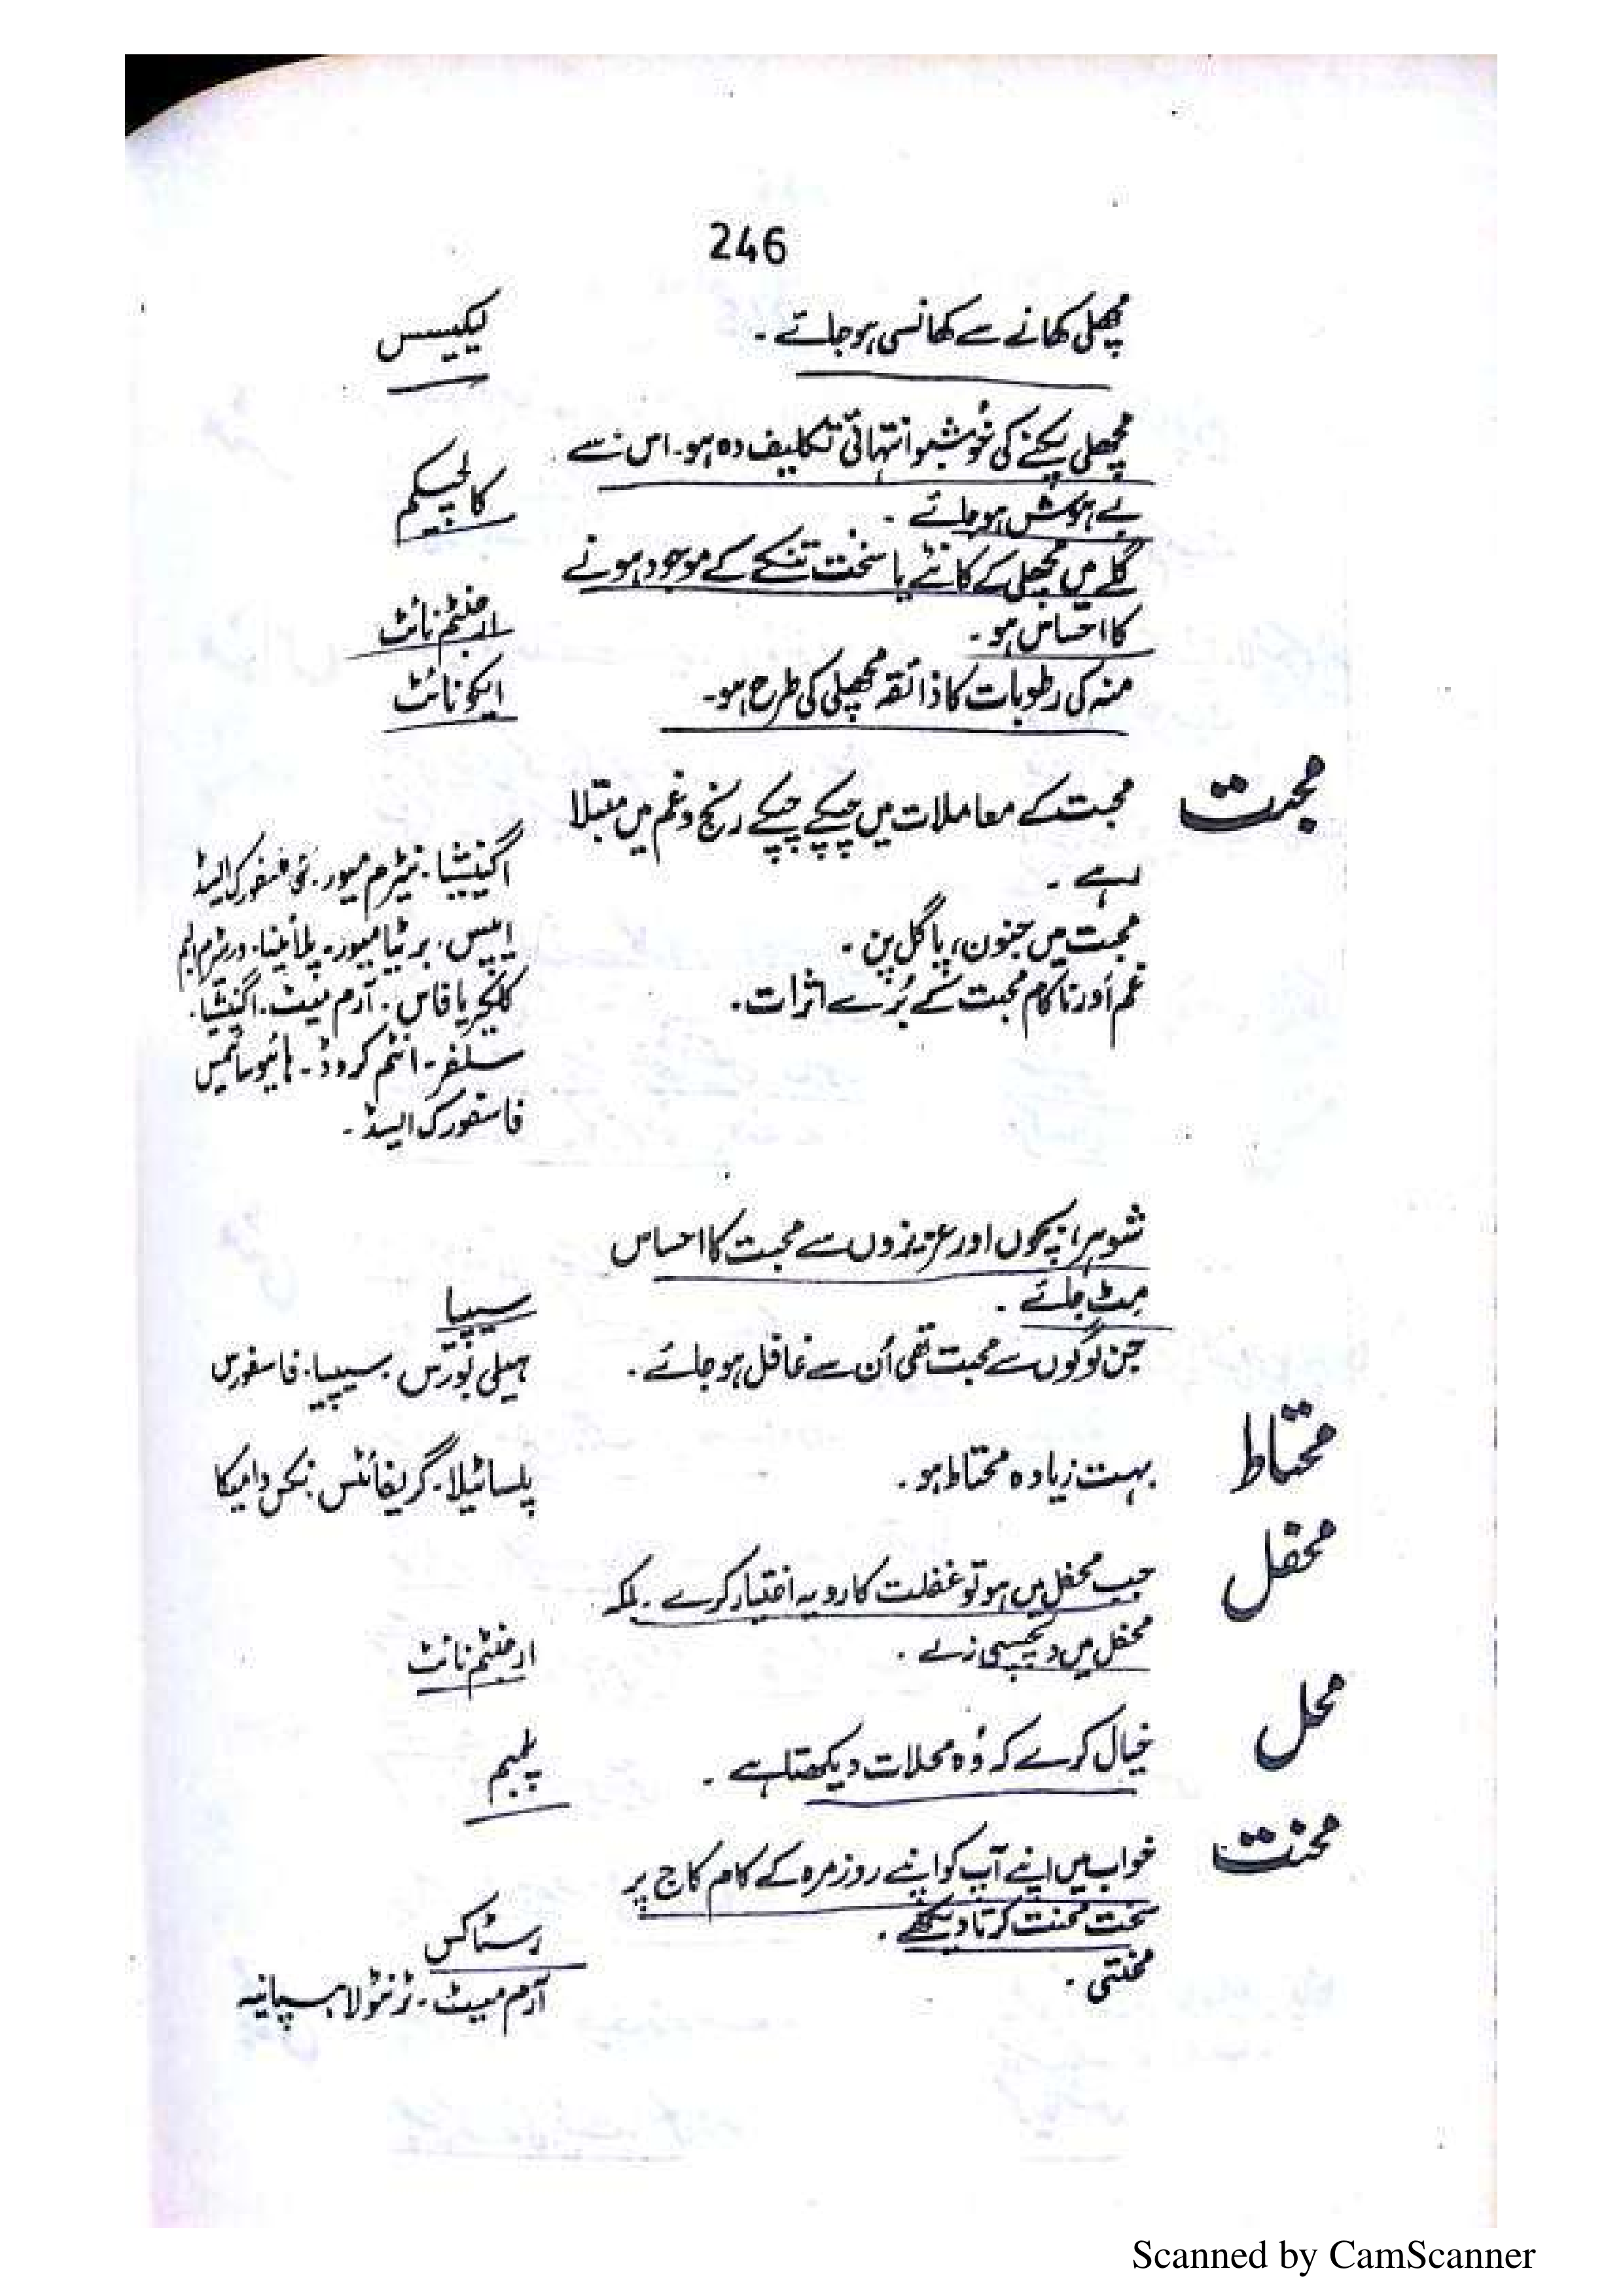 246
مچھلی کھانے سے کھانسی ہو جائے۔ لیکیسس
مچھلی پکنے کی خوشبو انتہائی تکلیف دہ ہو۔ اس سے
بے ہوش ہو جائے۔ کالچیکم
گلے میں مچھلی کے کانٹے یا سخت تنکے کے موجود ہونے
کا احساس ہو۔ ارجنٹم نائٹ
منہ کی رطوبات کا ذائقہ مچھلی کی طرح ہو۔ ایکونائٹ
محبت محبت کے معاملات میں چپکے چپکے رنج و غم میں مبتلا
رہے۔ اگنیشیا۔ نیٹرم میور۔ فاسفورک ایسڈ
محبت میں جنون، پاگل پن۔ ایپس۔ بریٹا میور۔ پلاٹینا۔ ورٹرم البم
غم اور ناکام محبت کے بُرے اثرات۔ کلکیریا فاس۔ آرم میٹ۔ اگنیشیا۔
سلفر۔ انٹم کروڈ۔ ہائیوسائمس
فاسفورک ایسڈ۔
شوہر، بچوں اور عزیزوں سے محبت کا احساس
مٹ جائے۔ سیپیا
جن لوگوں سے محبت تھی اُن سے غافل ہو جائے۔ ہیلی بورس۔ سیپیا۔ فاسفورس
محتاط بہت زیادہ محتاط ہو۔ پلساٹیلا۔ گریفائٹس۔ نکس وامیکا
محفل جب محفل میں ہو تو غفلت کا رویہ اختیار کرے۔ بلکہ
محفل میں دلچسپی نہ لے۔ ارجنٹم نائٹ
محل خیال کرے کہ وُہ محلات دیکھتا ہے۔ پلمبم
محنت خواب میں اپنے آپ کو اپنے روزمرہ کے کام کاج پر
سخت محنت کرتا دیکھے۔ رسٹاکس
محنتی۔ آرم میٹ۔ ٹرنٹولا ہسپانیہ
Scanned by CamScanner